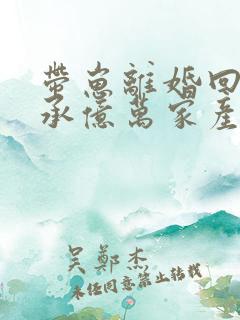 帶崽離婚回
承億萬家產
吳鄭杰
未经同意禁止转载